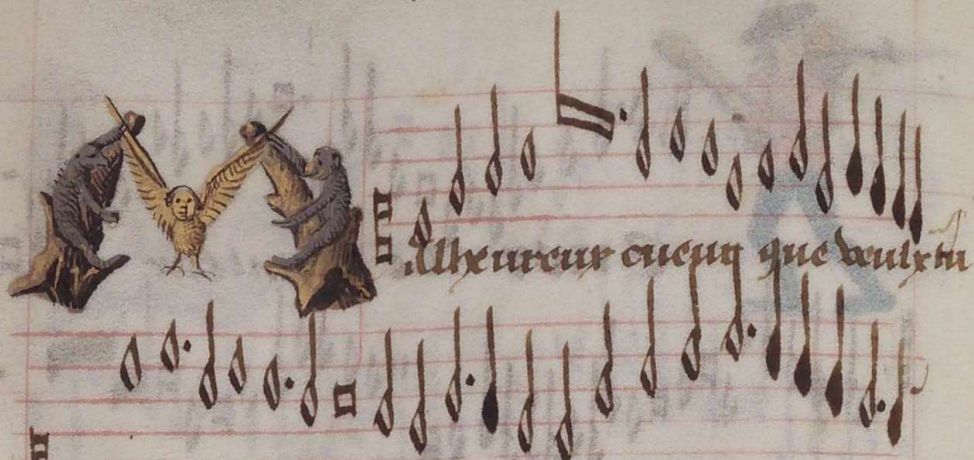 Malheureux cueur que veulx tu